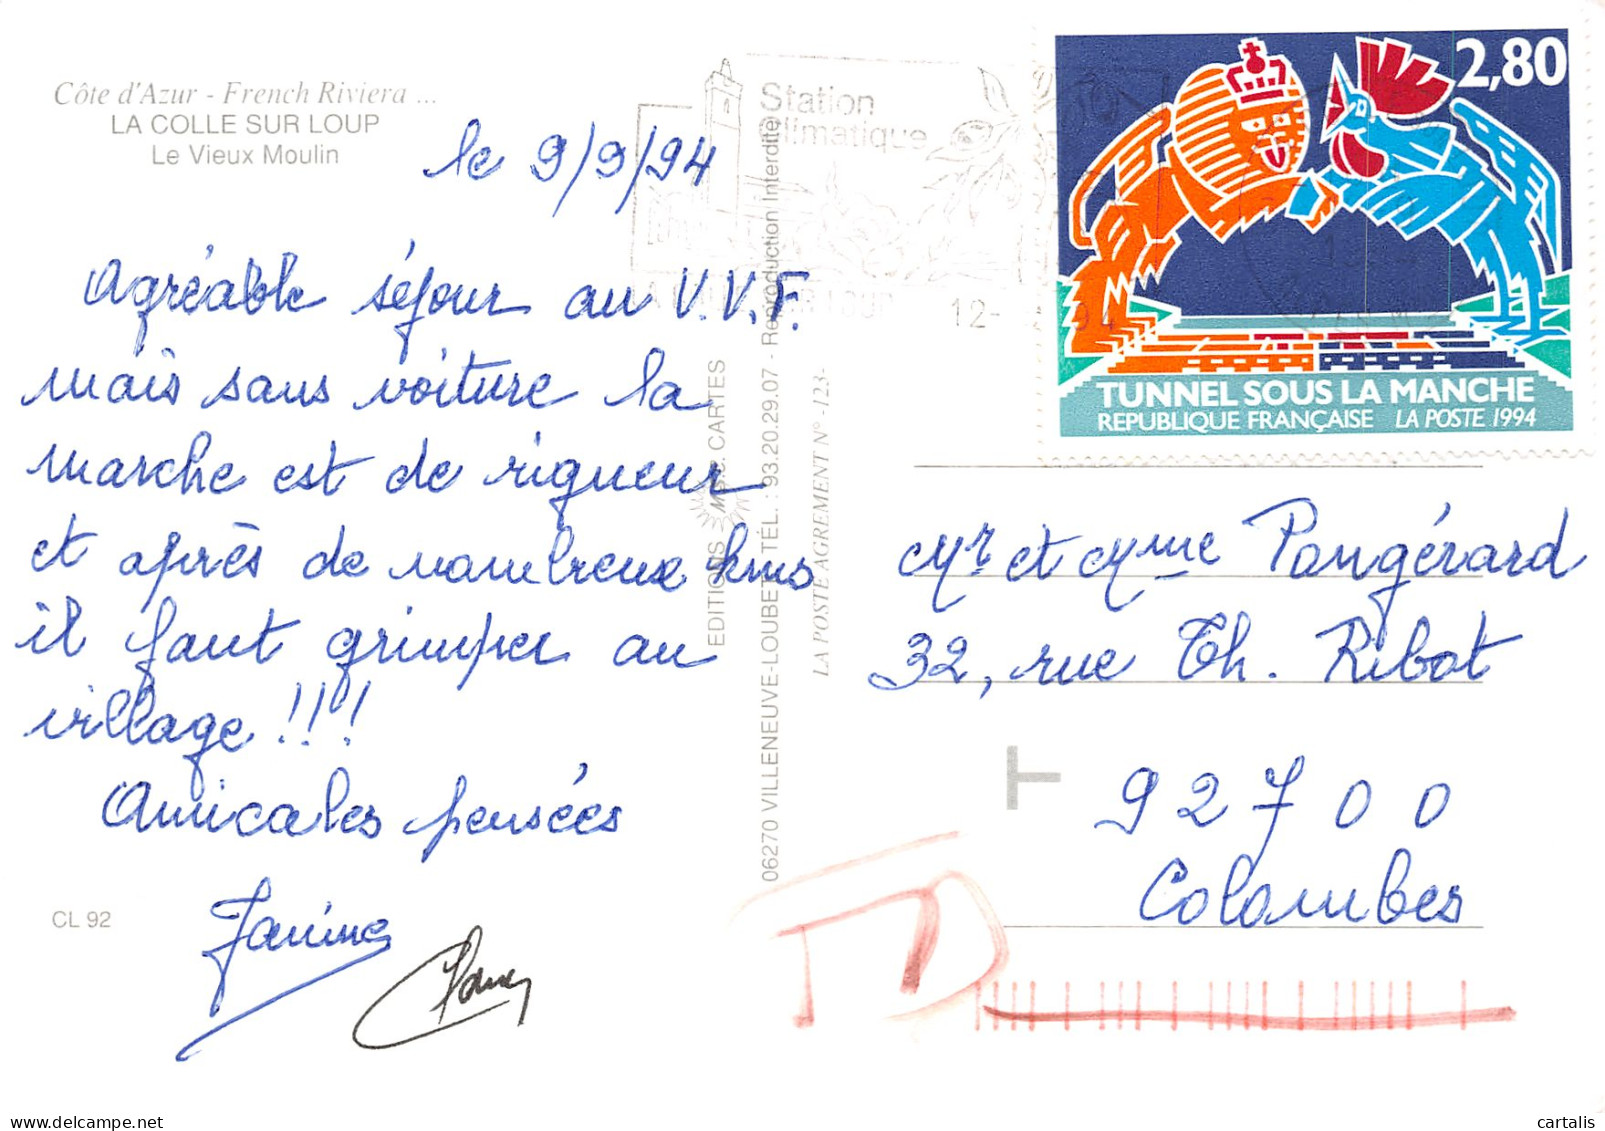 Côte d'Azur - French Riviera ...
LA COLLE SUR LOUP
Le Vieux Moulin
le 9/9/94
Agréable séjour au V.V.F.
mais sans voiture la
marche est de rigueur
et après de nombreux kms
il faut grimper au
village !!!
Amicales pensées
Janine
CL 92
EDITIONS MSC CARTES
06270 VILLENEUVE-LOUBET TÉL. : 93.20.29.07 - Reproduction interdite
LA POSTE AGREMENT N° -123-
Station
Climatique
LOUP
12-
94
2,80
TUNNEL SOUS LA MANCHE
REPUBLIQUE FRANÇAISE LA POSTE 1994
Mr et Mme Pangérard
32, rue Th. Ribot
T
92700
Colombes
TD
cartalis